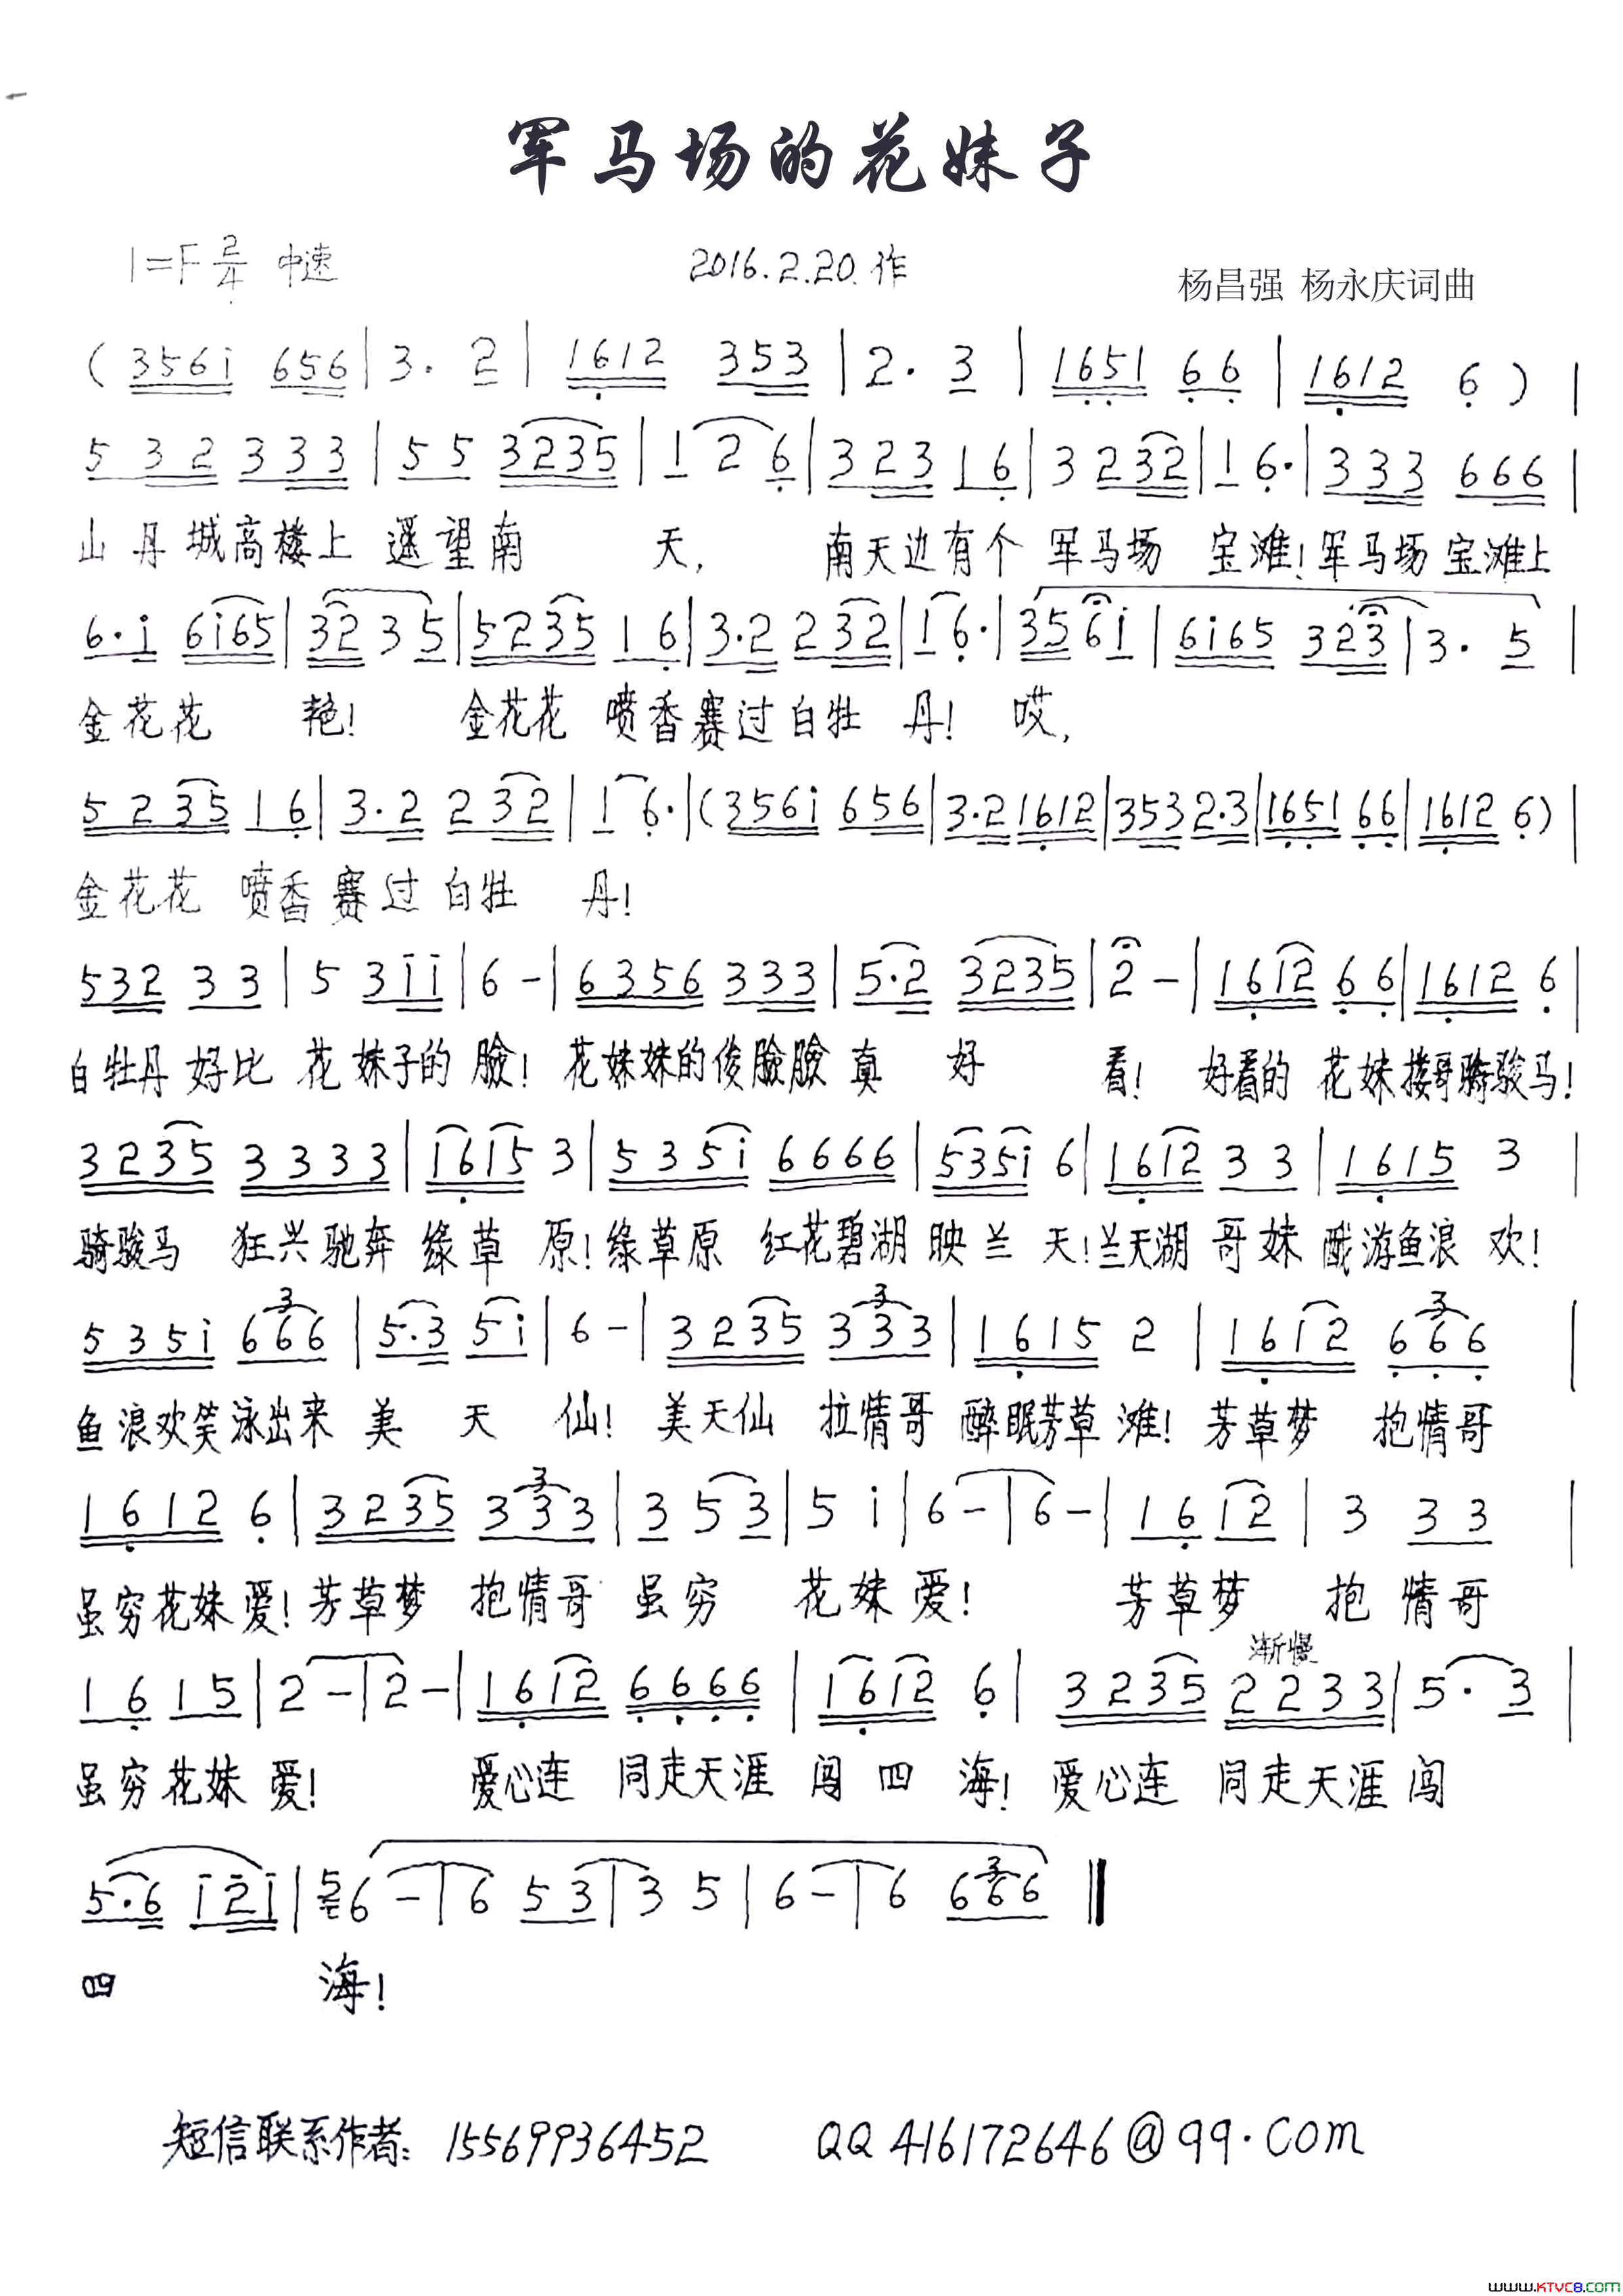 军马场的花妹子
1=F 2/4 中速 2016.2.20.作 杨昌强 杨永庆词曲
(356i 656|3. 2|1612 353|2. 3|1651 66|1612 6)|
532 333|55 3235|1 2 6|323 16|3 232|1 6.|333 666|
山丹城高楼上 遥望南 天, 南天边有个 军马场 宝滩! 军马场宝滩上
6.i 6i65|32 3 5|5235 16|3.2 232|1 6.|35 6 i|6i65 323|3. 5|
金花花 艳! 金花花 喷香赛过白牡 丹! 哎,
5235 16|3.2 232|1 6.|(356i 656|3.2 1612|353 2.3|1651 66|1612 6)|
金花花 喷香赛过白牡 丹!
532 33|5 3ii|6 -|6356 333|5.2 3235|2 -|1612 66|1612 6|
白牡丹好比 花妹子的 脸! 花妹妹的俊脸脸真 好 看! 好看的 花妹搂哥骑骏马!
3235 3333|1615 3|535i 6666|535i 6|1612 33|1615 3|
骑骏马 狂兴驰奔 绿草 原! 绿草原 红花碧湖映兰 天! 兰天湖 哥妹 戏游鱼浪 欢!
535i 666 3|5.3 5i|6 -|3235 333 3|1615 2|1612 666 3|
鱼浪欢笑泳出来 美 天 仙! 美天仙 拉情哥 醉眠芳草 滩! 芳草梦 抱情哥
1612 6|3235 333 3|3 5 3|5 i|6 -|6 -|16 12|3 33|
虽穷花妹 爱! 芳草梦 抱情哥 虽穷 花妹爱! 芳草梦 抱 情哥
16 15|2 -|2 -|1612 6666|1612 6|3235 渐慢 2233|5. 3|
虽穷花妹 爱! 爱心连 同走天涯 闯 四 海! 爱心连 同走天涯闯
5.6 i2i|5 6 -|6 53|3 5|6 -|6 666 3‖
四 海!
短信联系作者: 15569936452 QQ 416172646@qq.com
www.KTVC8.com